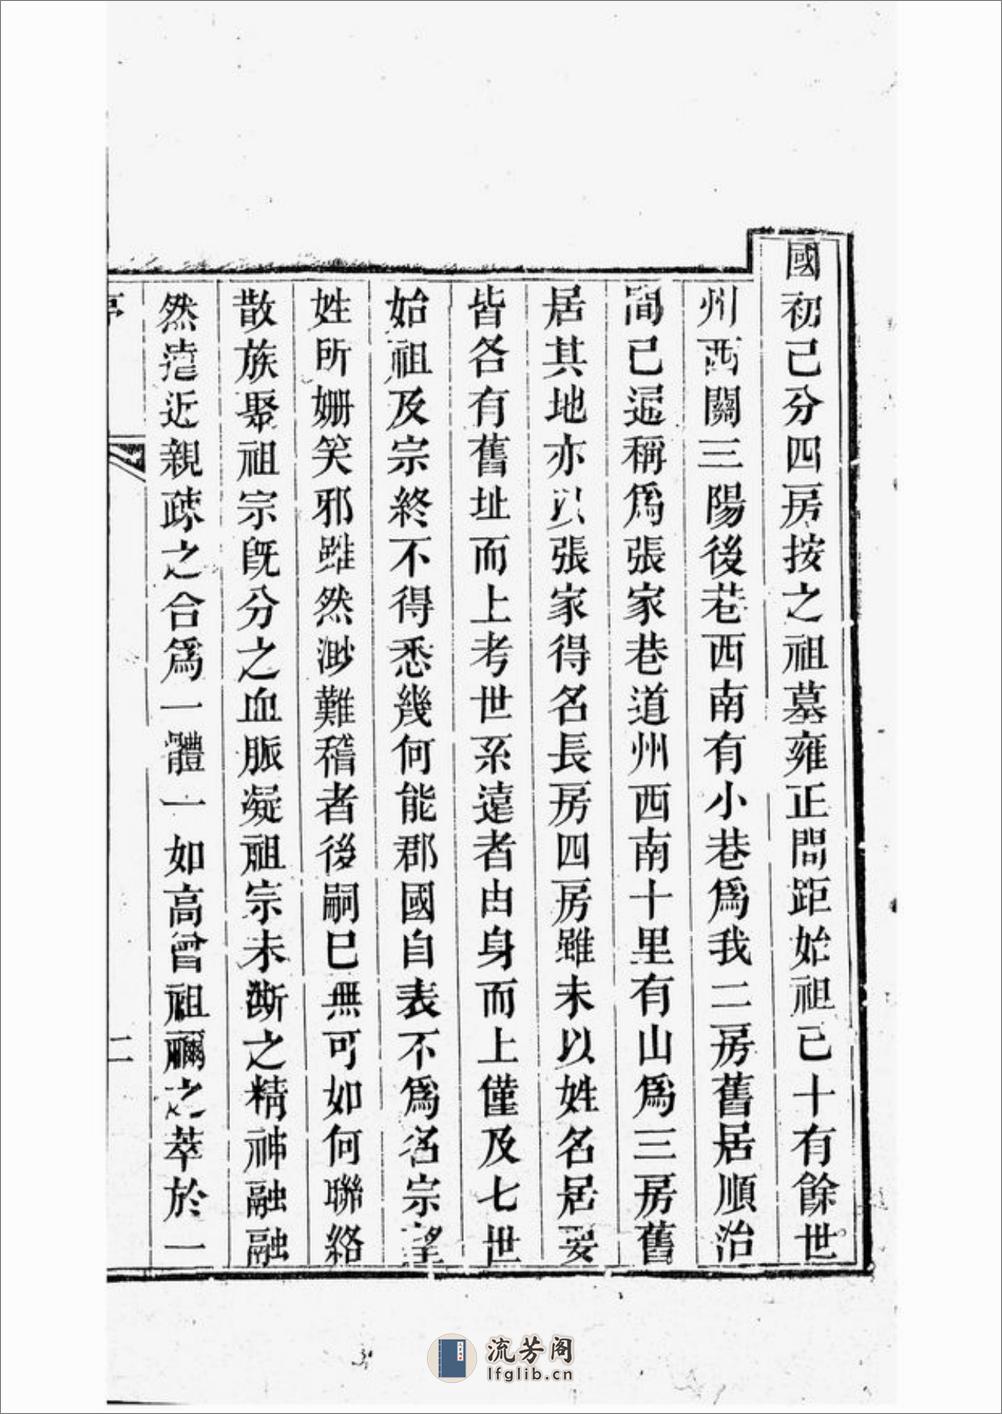 國初已分四房按之祖墓雍正間距始祖已十有餘世
州西關三陽後巷西南有小巷爲我二房舊居順治
間已遥稱爲張家巷道州西南十里有山爲三房舊
居其地亦以張家得名長房四房雖未以姓名居要
皆各有舊址而上考世系遠者由身而上僅及七世
始祖及宗終不得悉幾何能郡國自表不爲名宗望
姓所姍笑邪雖然渺難稽者後嗣已無可如何聯絡
散族聚祖宗旣分之血脈凝祖宗未斷之精神融融
然遠近親疎之合爲一體一如高曾祖禰之萃於一
序
二
流芳阁
lfglib.cn